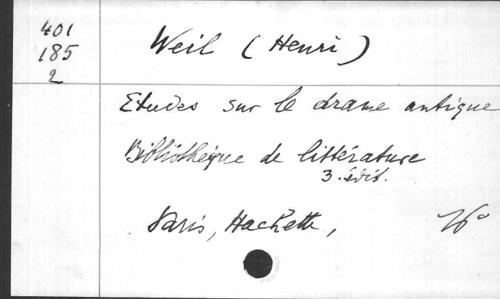 401
185
2
Weil (Henri)
Etudes sur le drame antique
Bibliothèque de littérature
3. édit.
Paris, Hachette,